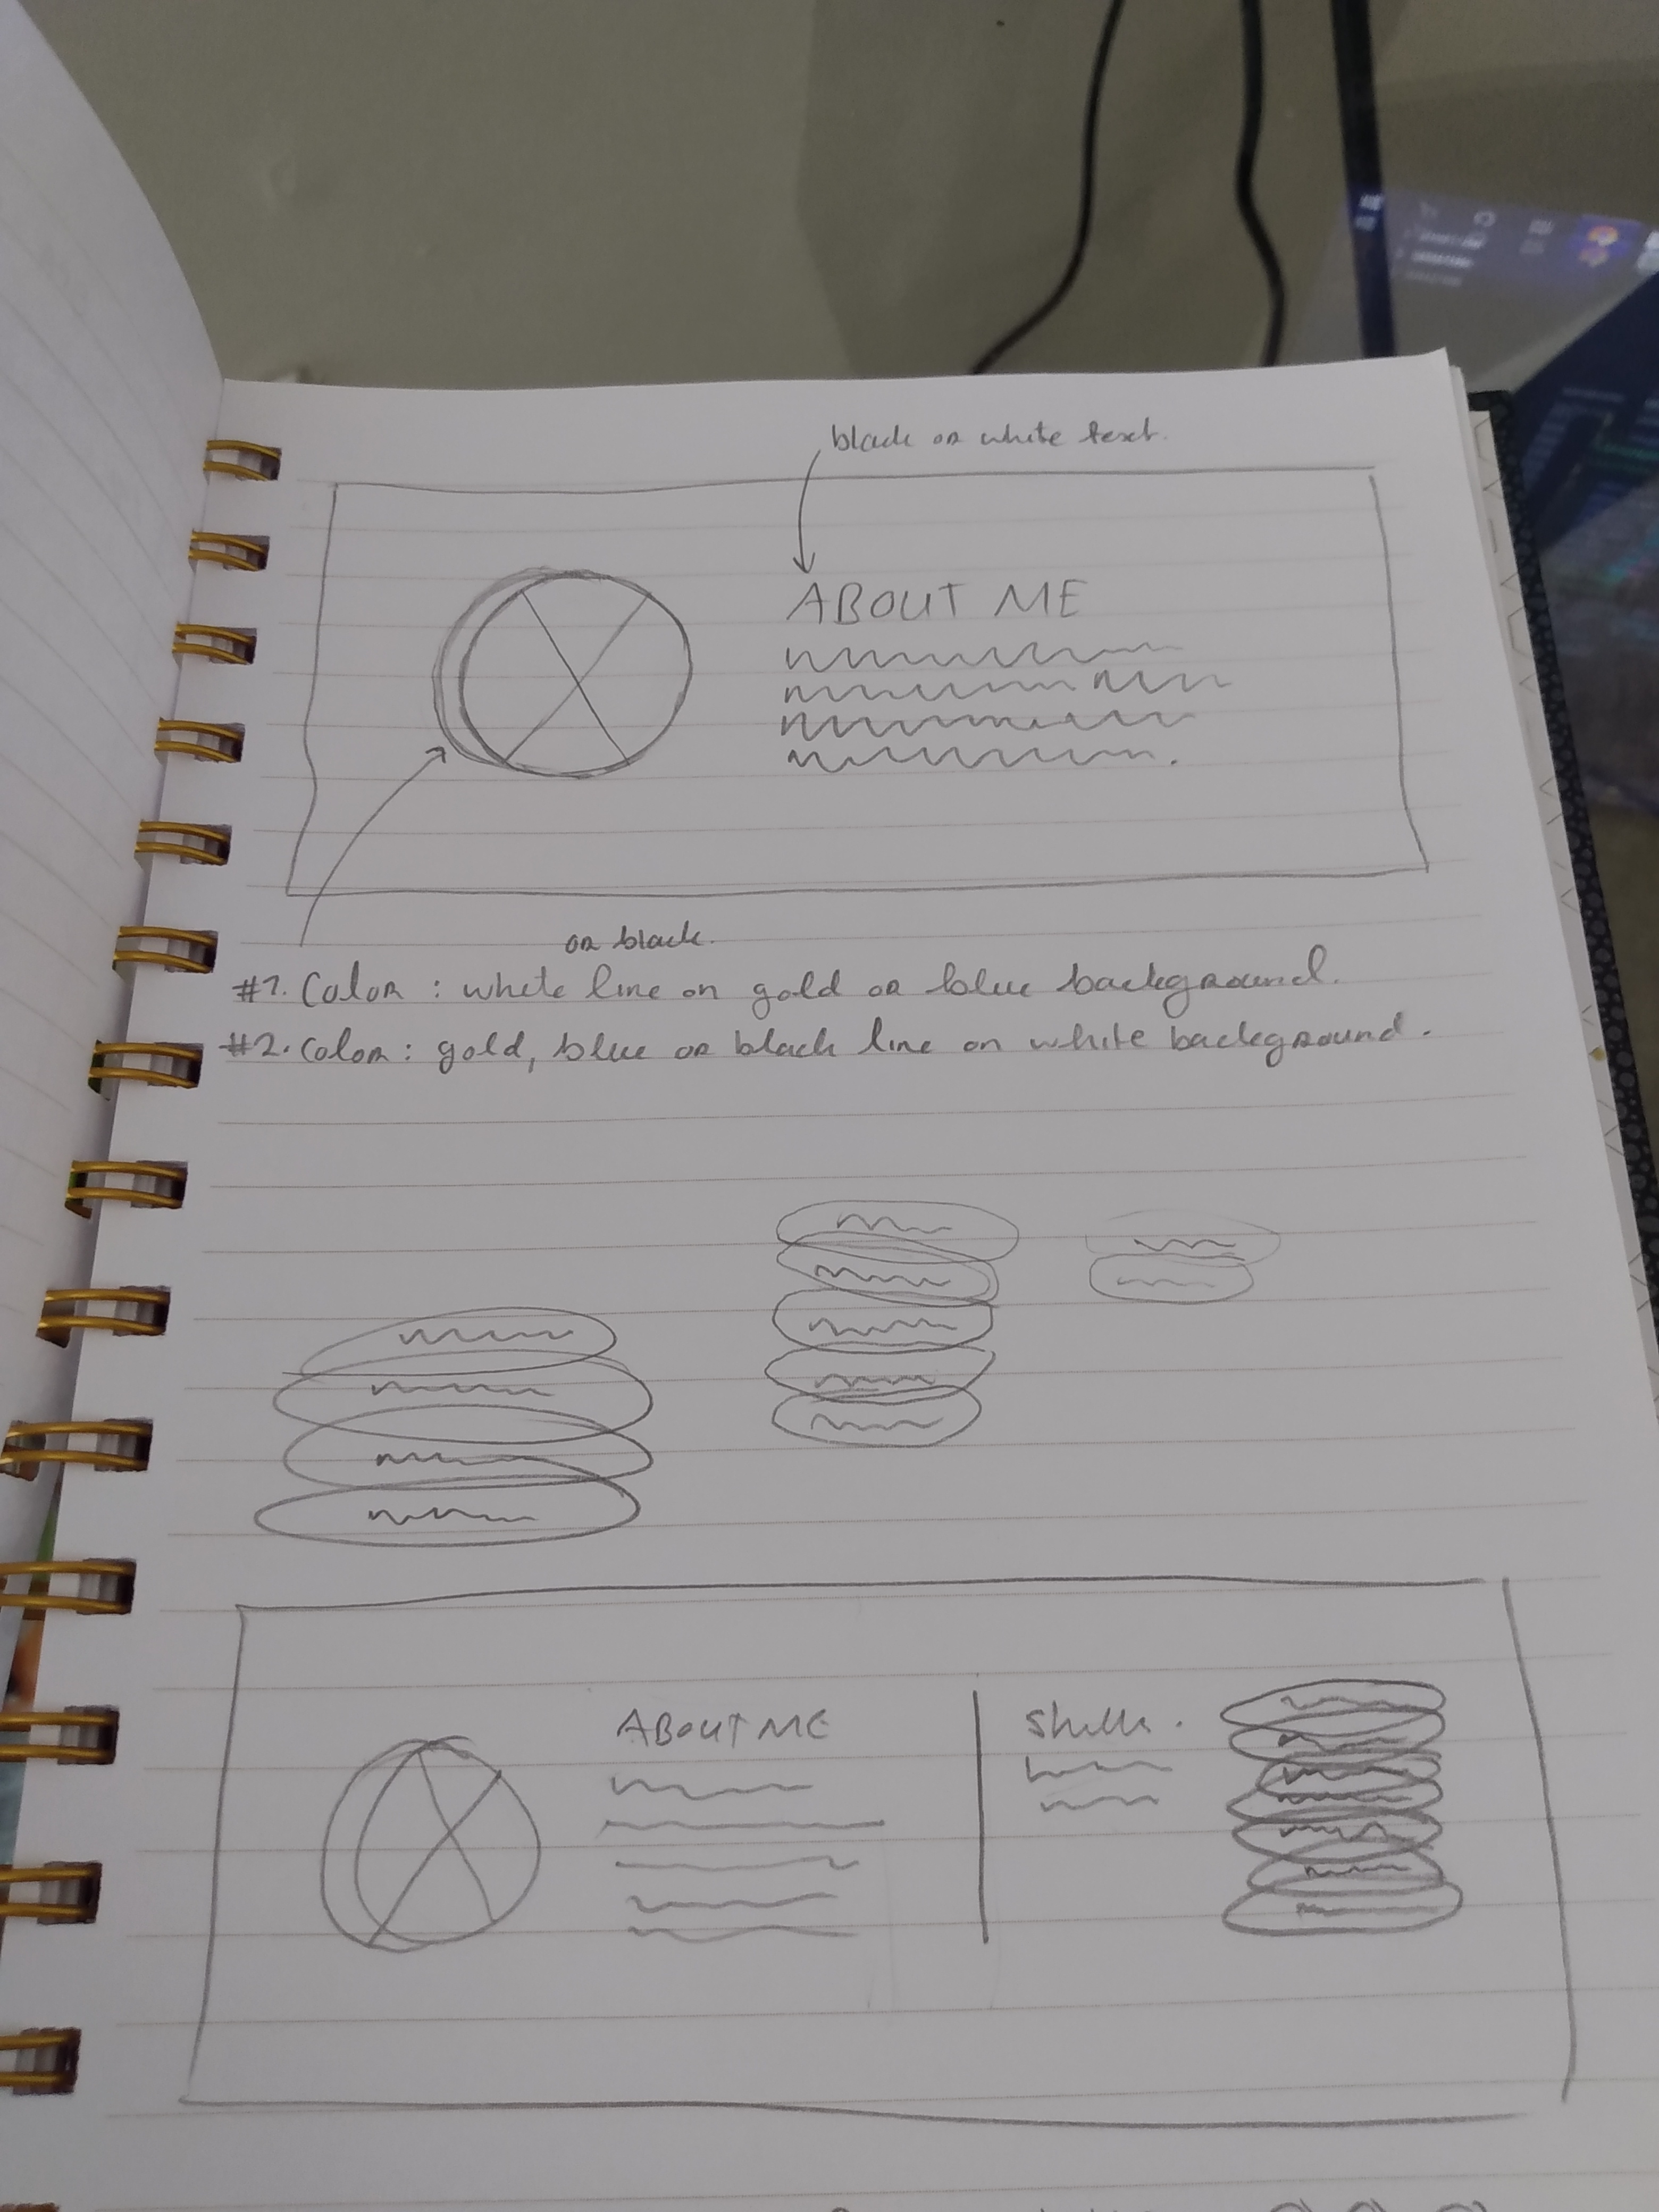 black or white text.
ABOUT ME
or black.
#1. Color : white line on gold or blue background.
#2. Color : gold, blue or black line on white background.
ABOUT ME
Skills.